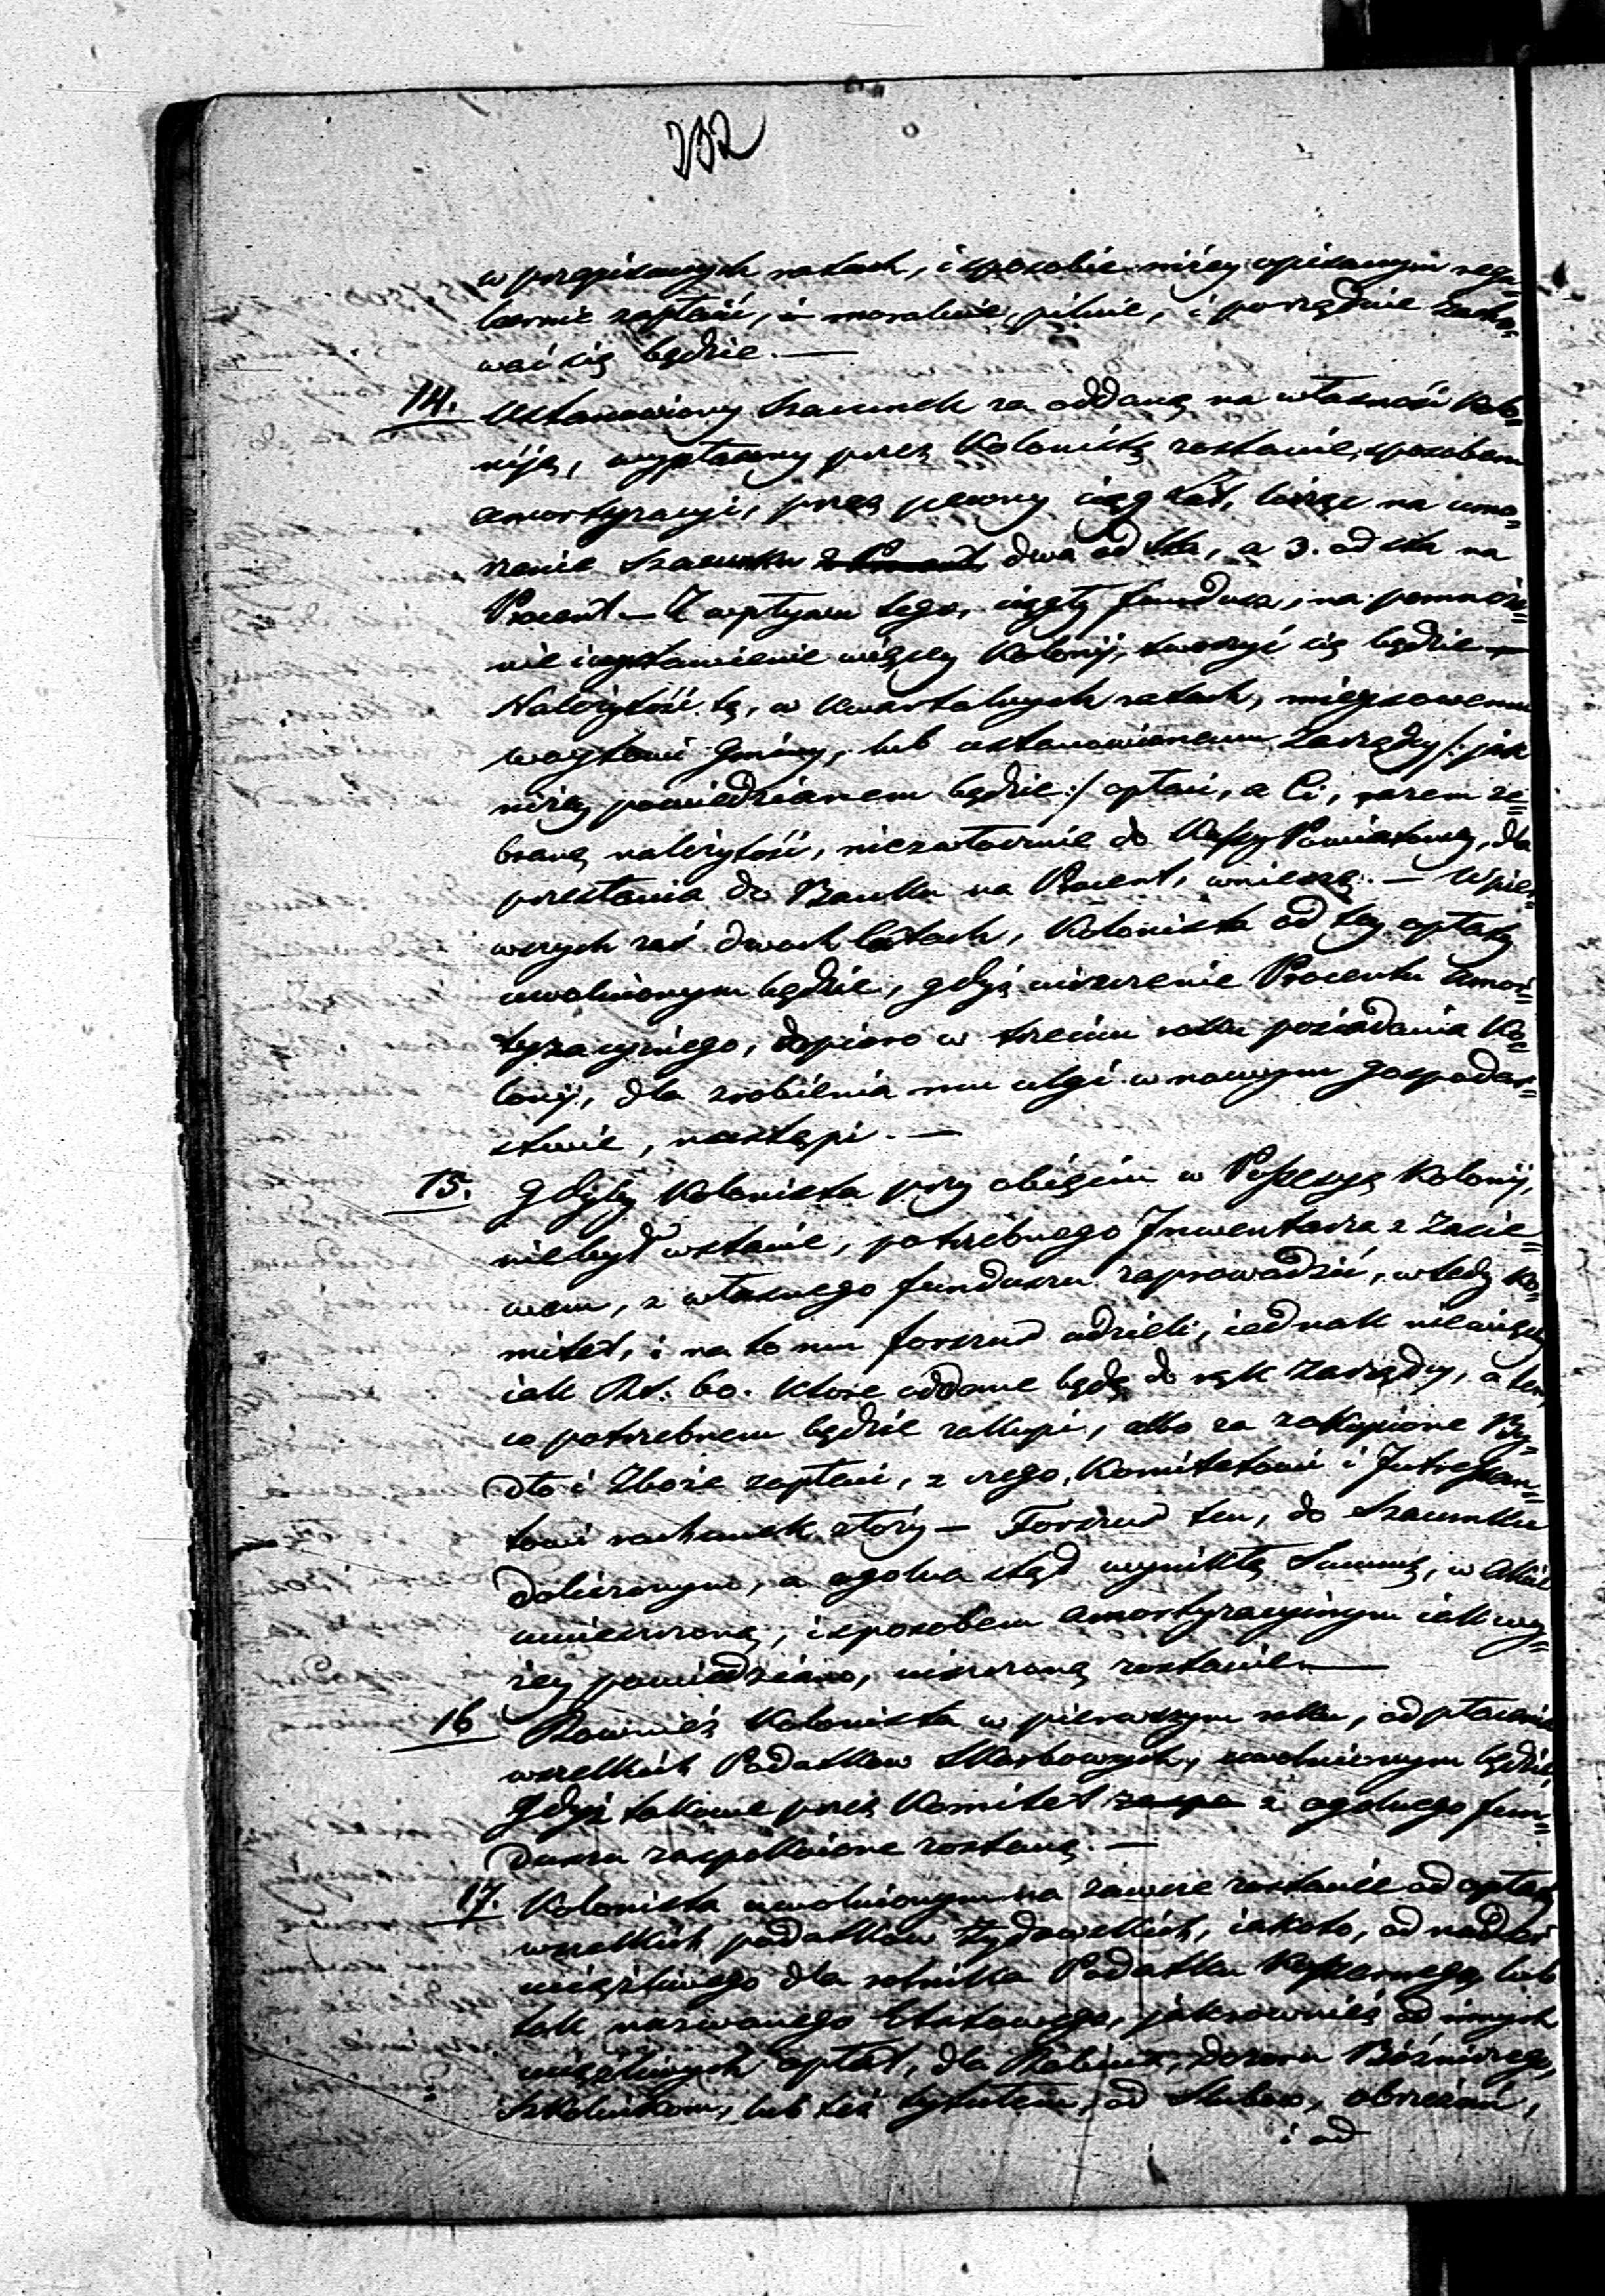 232
w przepisanych ratach, i sposobie niżey opisanym regu=
larnie zapłacić, i moralnie, pilnie, i porządnie zacho=
wać się będzie. —
14. Ustanowiony Szacunek za oddaną na własność Kolo=
niją, wypłacony przez Kolonistę zostanie, sposobem
amortyzacyi, przez pewny ciąg lat, licząc na umo=
rzenie Szacunku dwa od sta, a 3. od sta na
Procent — Z wpływu tego, ciągły fundusz, na pomnoże=
nie i wystawienie więcey Kolonij, tworzyć się będzie —
Należytość tę, w kwartalnych ratach, mieyscowemu
Woytowi Gminy, lub ustanowionemu Zarządcy /: jak
niżey powiedzianem będzie :/ opłaci, a Ci, razem ze=
braną należytość, niezwłocznie do Kassy Powiatowey, dla
przesłania do Banku na Procent, wniosą. — W pier=
wszych zaś dwoch latach, Kolonista od tey opłaty
uwolnionym będzie, gdyż uiszczenie Procentu amor=
tyzacyinego, dopiero w trzecim roku posiadania Ko=
lonij, dla zrobienia mu ulgi w nowym gospodar=
stwie, nastąpi. —
15. Gdyby Kolonista przy obięciu w Possessyą Kolonij,
niebył wstanie, potrzebnego Inwentarza z Zasie=
wem, z własnego funduszu zaprowadzić, wtedy Ko=
mitet, i na to mu forszus udzieli, iednak niewięcey
iak Rs. 60. które oddane będą do rąk Zarządcy, a ten,
co potrzebnem będzie zakupi, albo za zakupione By=
dło i Zboże zapłaci, z czego, Komitetowi i Intressan=
towi rachunek złoży — Forszus ten, do Szacunku
doliczonym, a ogolna ztąd wynikłą Summą, w Akcie
umieszczoną, i sposobem amortyzacyinym iak wy=
żey powiedziano, uiszczoną zostanie. —
16 Rownież Kolonista w pierwszym roku, od płacenia
wszelkich Podatkow Skarbowych, uwolnionym będzie,
gdyż takowe przez Komitet z ogolnego fun=
duszu zaspokoione zostaną. —
17. Kolonista uwolnionym na zawsze zostanie od opłaty
wszelkich podatkow Żydowskich, iakoto, od nader
uciążliwego dla rolnika Podatku Koszernego, lub
tak nazwanego, jakrownież od innych
uciążliwych opłat, dla Rabina, Dozoru Bóżniczego,
Szkolnikom, lub też tytułem, od Slubow, obrzezań,
i od